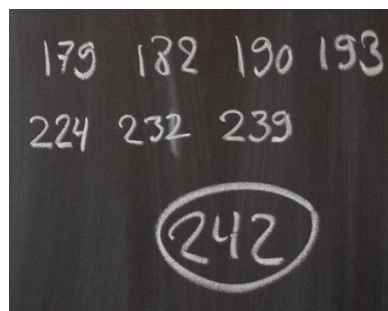 179 182 190 193
224 232 239
242